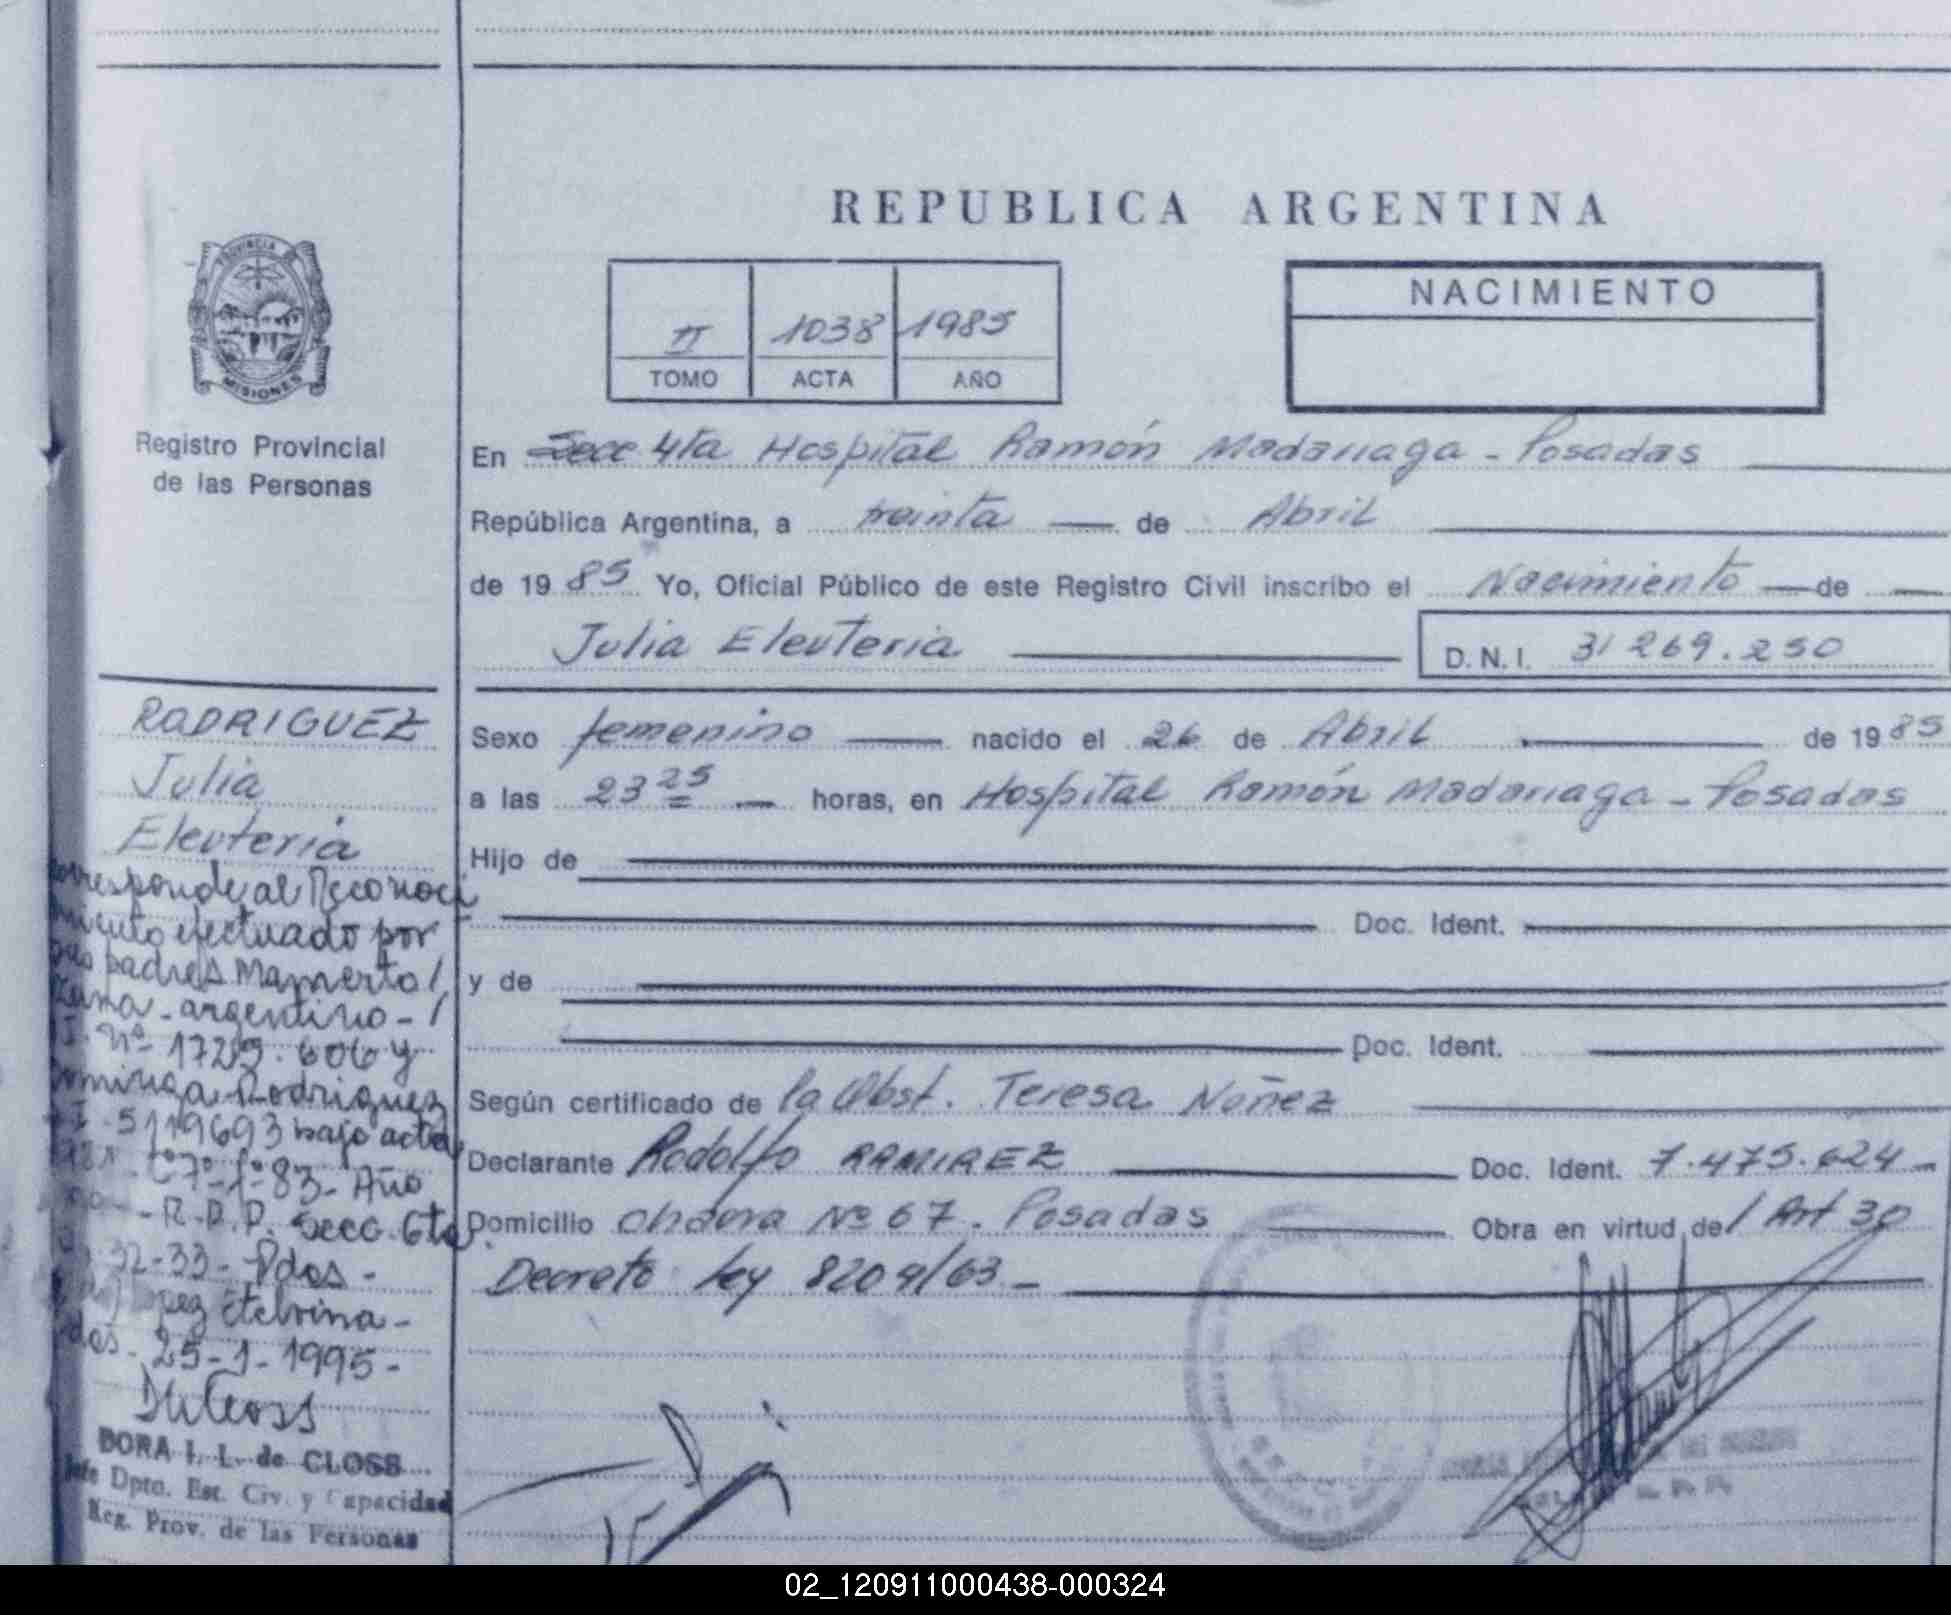 REPUBLICA ARGENTINA
PROVINCIA
MISIONES
Registro Provincial
de las Personas
II 1038 1985
TOMO ACTA AÑO
NACIMIENTO
En Secc 4ta Hospital Ramón Madariaga - Posadas
República Argentina, a treinta de Abril
de 1985 Yo, Oficial Público de este Registro Civil inscribo el Nacimiento de
Julia Eleuteria
D.N.I. 31 269.250
Sexo femenino nacido el 26 de Abril de 1985
a las 23 25 horas, en Hospital Ramón Madariaga - Posadas
Hijo de
Doc. Ident.
y de
Doc. Ident.
Según certificado de la Obst. Teresa Nuñez
Declarante Rodolfo RAMIREZ Doc. Ident. 7.475.624
Domicilio chacra Nº 67. Posadas Obra en virtud de/ Art 30
Decreto Ley 8204/63
RODRIGUEZ
Julia
Eleuteria
corresponde al Reconoci
miento efectuado por
padres Mamerto /
argentino - /
Nº 1729.606 y
Dominga Rodriguez
5119693 bajo acta
Tº 7º - fº 83 - Año
R.P.P. Secc. 6ta
32-33 - Pdas -
Lopez Etelvina -
Pdas - 25-1-1995 -
DORA I. L. de CLOSS
Jefe Dpto. Est. Civ. y Capacidad
Reg. Prov. de las Personas
02_120911000438-000324